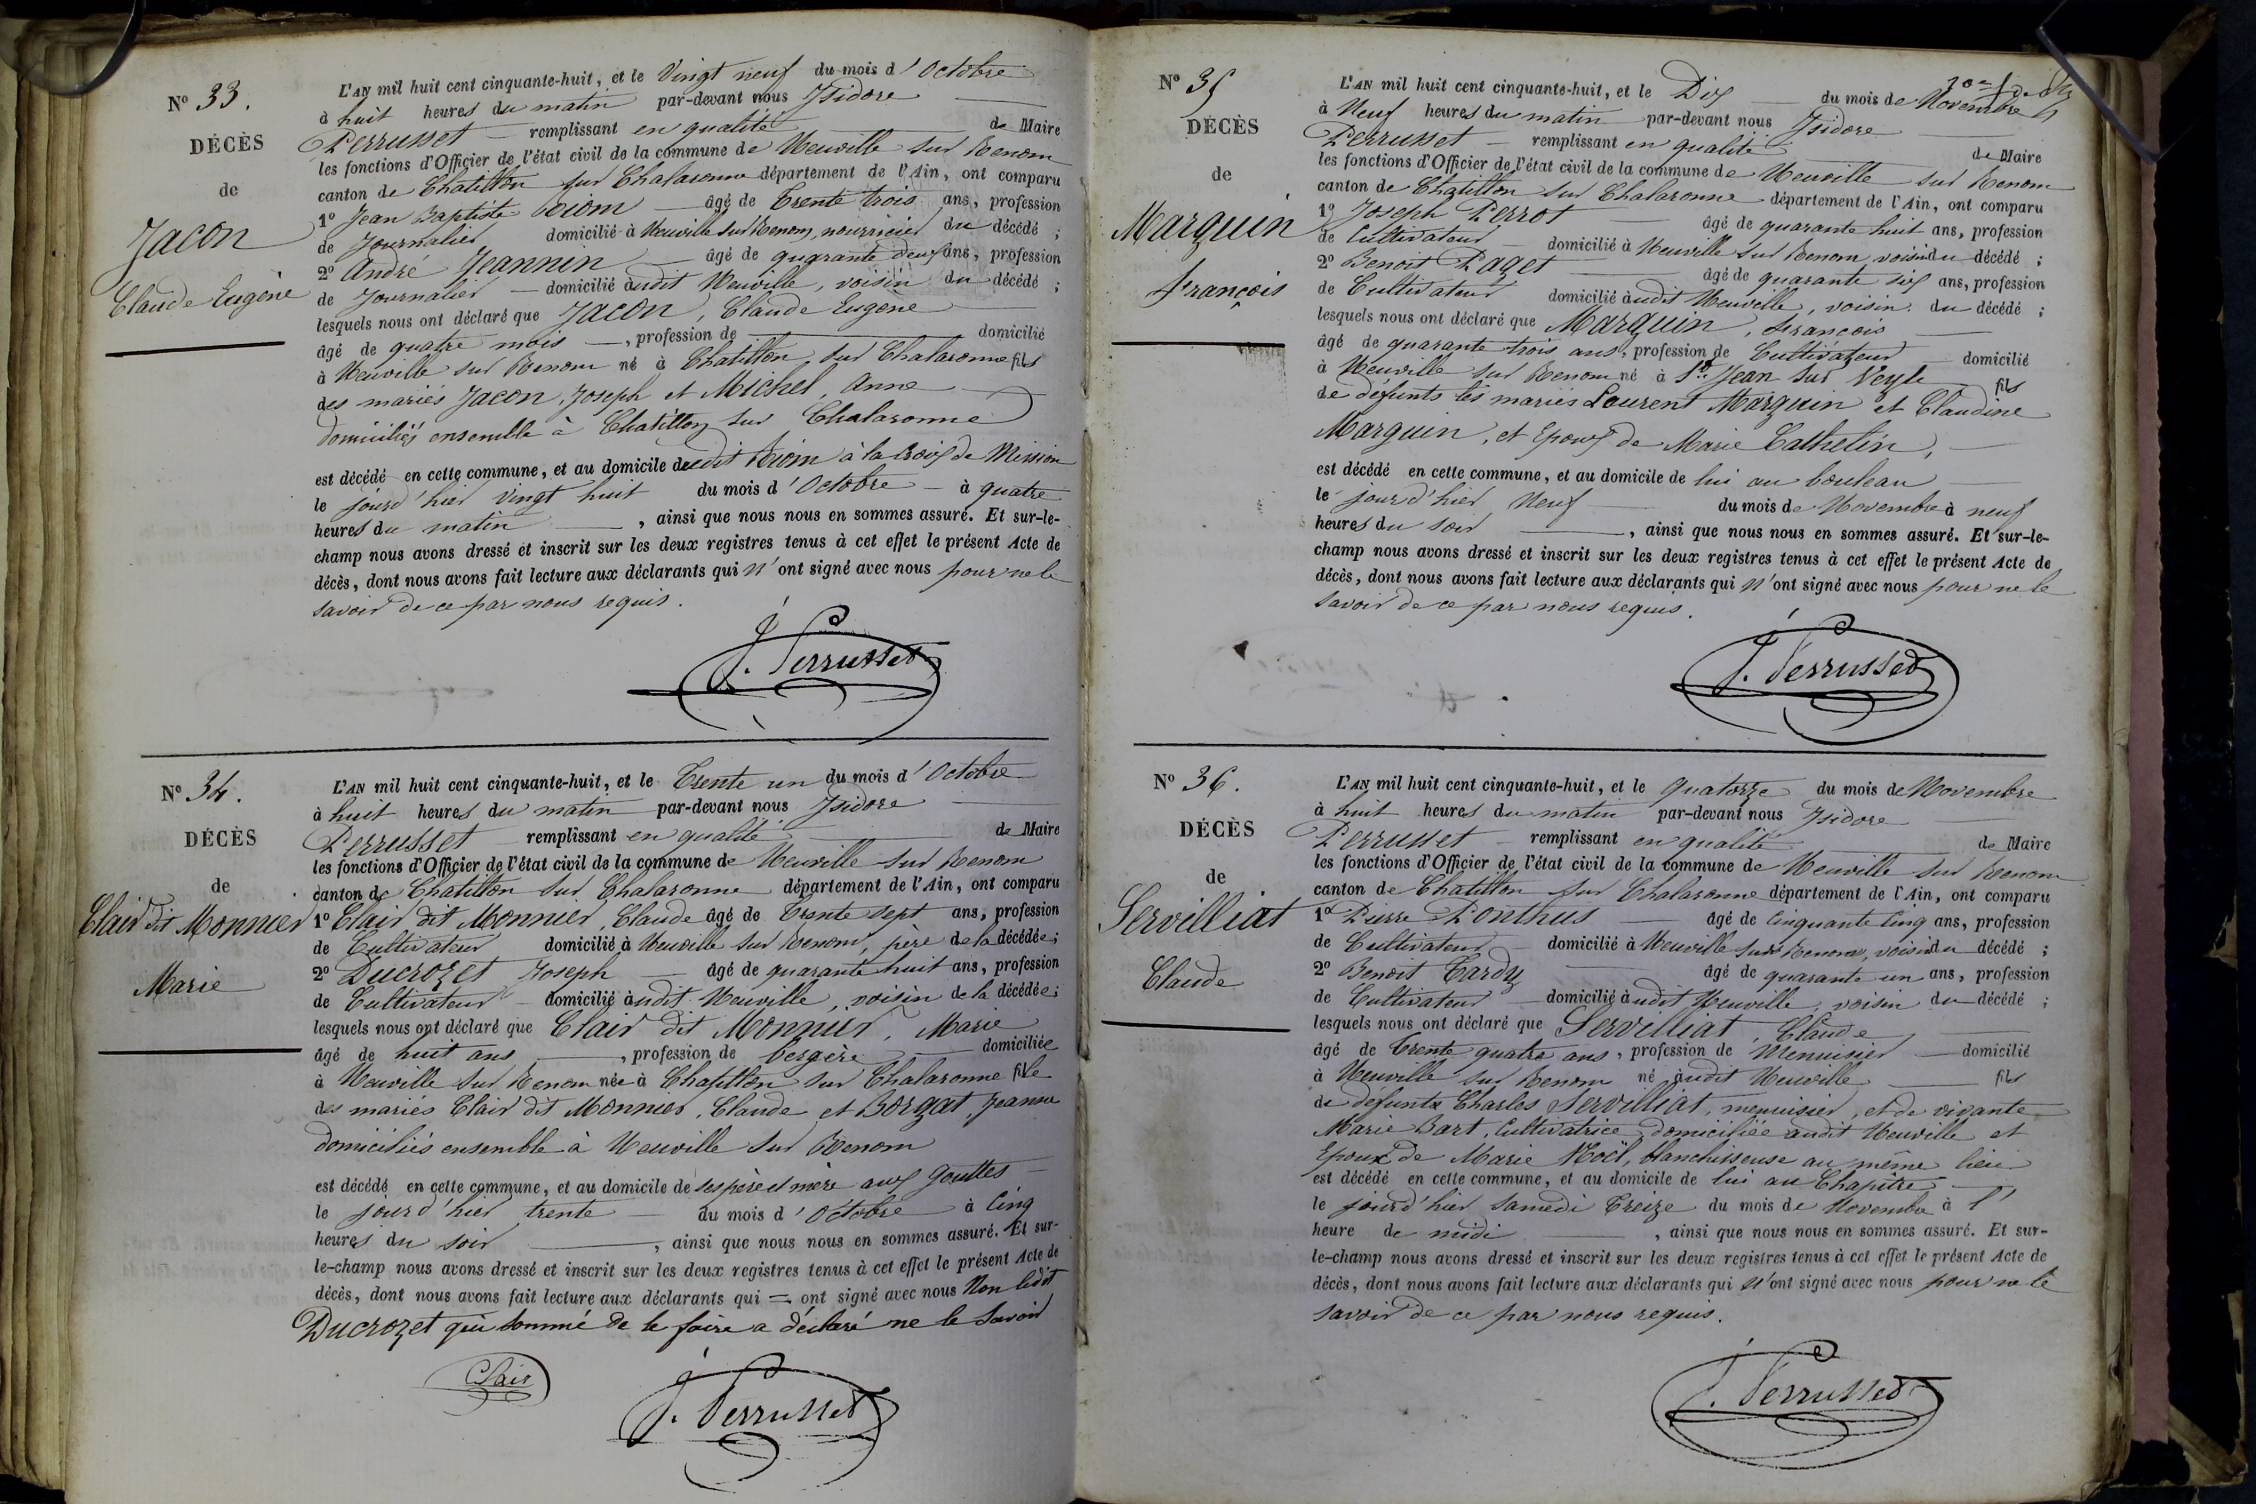 N° 33.
DÉCÈS
de
Jacon
Claude Eugène
L'AN mil huit cent cinquante-huit, et le Vingt neuf du mois d'Octobre
à huit heures du matin par-devant nous Isidore
Perrusset remplissant en qualité de Maire
les fonctions d'Officier de l'état civil de la commune de Neuville sur Renom
canton de Chatillon sur Chalaronne département de l'Ain, ont comparu
1° Jean Baptiste Briom âgé de Trente trois ans, profession
de Journalier domicilié à Neuville sur Renom, nourricier du décédé ;
2° André Jeannin âgé de quarante deux ans, profession
de Journalier domicilié audit Neuville, voisin du décédé ;
lesquels nous ont déclaré que Jacon, Claude Eugene
âgé de quatre mois, profession de domicilié
à Neuville sur Renom né à Chatillon sur Chalaronne fils
des mariés Jacon, Joseph et Michel, Anne
domiciliés ensemble à Chatillon sur Chalaronne
est décédé en cette commune, et au domicile dudit Briom à la Croix de Mission
le jourd'hier Vingt huit du mois d'Octobre à quatre
heures du matin, ainsi que nous nous en sommes assuré. Et sur-le-
champ nous avons dressé et inscrit sur les deux registres tenus à cet effet le présent Acte de
décès, dont nous avons fait lecture aux déclarants qui n'ont signé avec nous pour ne le
savoir de ce par nous requis.
J. Perrusset
N° 34.
DÉCÈS
de
Clair dit Monnier
Marie
L'AN mil huit cent cinquante-huit, et le Trente un du mois d'Octobre
à huit heures du matin par-devant nous Isidore
Perrusset remplissant en qualité de Maire
les fonctions d'Officier de l'état civil de la commune de Neuville sur Renom
canton de Chatillon sur Chalaronne département de l'Ain, ont comparu
1° Clair dit Monnier, Claude âgé de Trente sept ans, profession
de Cultivateur domicilié à Neuville sur Renom, père de la décédée ;
2° Ducrozet Joseph âgé de quarante huit ans, profession
de Cultivateur domicilié audit Neuville, voisin de la décédée ;
lesquels nous ont déclaré que Clair dit Monnier, Marie
âgé de huit ans, profession de bergère domiciliée
à Neuville sur Renom née à Chatillon sur Chalaronne fille
des mariés Clair dit Monnier, Claude et Borgat, Jeanne
domiciliés ensemble à Neuville sur Renom
est décédé en cette commune, et au domicile de ses père et mère aux Gouttes
le jourd'hier trente du mois d'Octobre à Cinq
heures du soir, ainsi que nous nous en sommes assuré. Et sur-
le-champ nous avons dressé et inscrit sur les deux registres tenus à cet effet le présent Acte de
décès, dont nous avons fait lecture aux déclarants qui = ont signé avec nous Non ledit
Ducrozet qui sommé de le faire a déclaré ne le savoir
Clair
J. Perrusset
N° 35
DÉCÈS
de
Marguin
François
L'AN mil huit cent cinquante-huit, et le Dix du mois de Novembre
à Neuf heures du matin par-devant nous Isidore
Perrusset remplissant en qualité de Maire
les fonctions d'Officier de l'état civil de la commune de Neuville sur Renom
canton de Chatillon sur Chalaronne département de l'Ain, ont comparu
1° Joseph Perrot âgé de quarante huit ans, profession
de Cultivateur domicilié à Neuville sur Renom, voisin du décédé ;
2° Benoit Paget âgé de quarante six ans, profession
de Cultivateur domicilié audit Neuville, voisin du décédé ;
lesquels nous ont déclaré que Marguin, François
âgé de quarante trois ans, profession de Cultivateur domicilié
à Neuville sur Renom né à St. Jean sur Veyle fils
de défunts les mariés Laurent Marguin et Claudine
Marguin, et Epoux de Marie Cathelin,
est décédé en cette commune, et au domicile de lui au bouleau
le jour d'hier Neuf du mois de Novembre à neuf
heures du soir, ainsi que nous nous en sommes assuré. Et sur-le-
champ nous avons dressé et inscrit sur les deux registres tenus à cet effet le présent Acte de
décès, dont nous avons fait lecture aux déclarants qui n'ont signé avec nous pour ne le
savoir de ce par nous requis.
J. Perrusset
N° 36.
DÉCÈS
de
Servilliat
Claude
L'AN mil huit cent cinquante-huit, et le quatorze du mois de Novembre
à huit heures du matin par-devant nous Isidore
Perrusset remplissant en qualité de Maire
les fonctions d'Officier de l'état civil de la commune de Neuville sur Renom
canton de Chatillon sur Chalaronne département de l'Ain, ont comparu
1° Pierre Ponthus âgé de Cinquante Cinq ans, profession
de Cultivateur domicilié à Neuville sur Renom, voisin du décédé ;
2° Benoit Tardy âgé de quarante un ans, profession
de Cultivateur domicilié audit Neuville, voisin du décédé ;
lesquels nous ont déclaré que Servilliat, Claude
âgé de Trente quatre ans, profession de Menuisier domicilié
à Neuville sur Renom né audit Neuville fils
de défunt Charles Servilliat, menuisier, et de vivante
Marie Bart, Cultivatrice domiciliée audit Neuville et
Epoux de Marie Noël, blanchisseuse au même lieu
est décédé en cette commune, et au domicile de lui au Chapitre
le jourd'hier samedi Treize du mois de Novembre à l'
heure de midi, ainsi que nous nous en sommes assuré. Et sur-
le-champ nous avons dressé et inscrit sur les deux registres tenus à cet effet le présent Acte de
décès, dont nous avons fait lecture aux déclarants qui n'ont signé avec nous pour ne le
savoir de ce par nous requis.
J. Perrusset